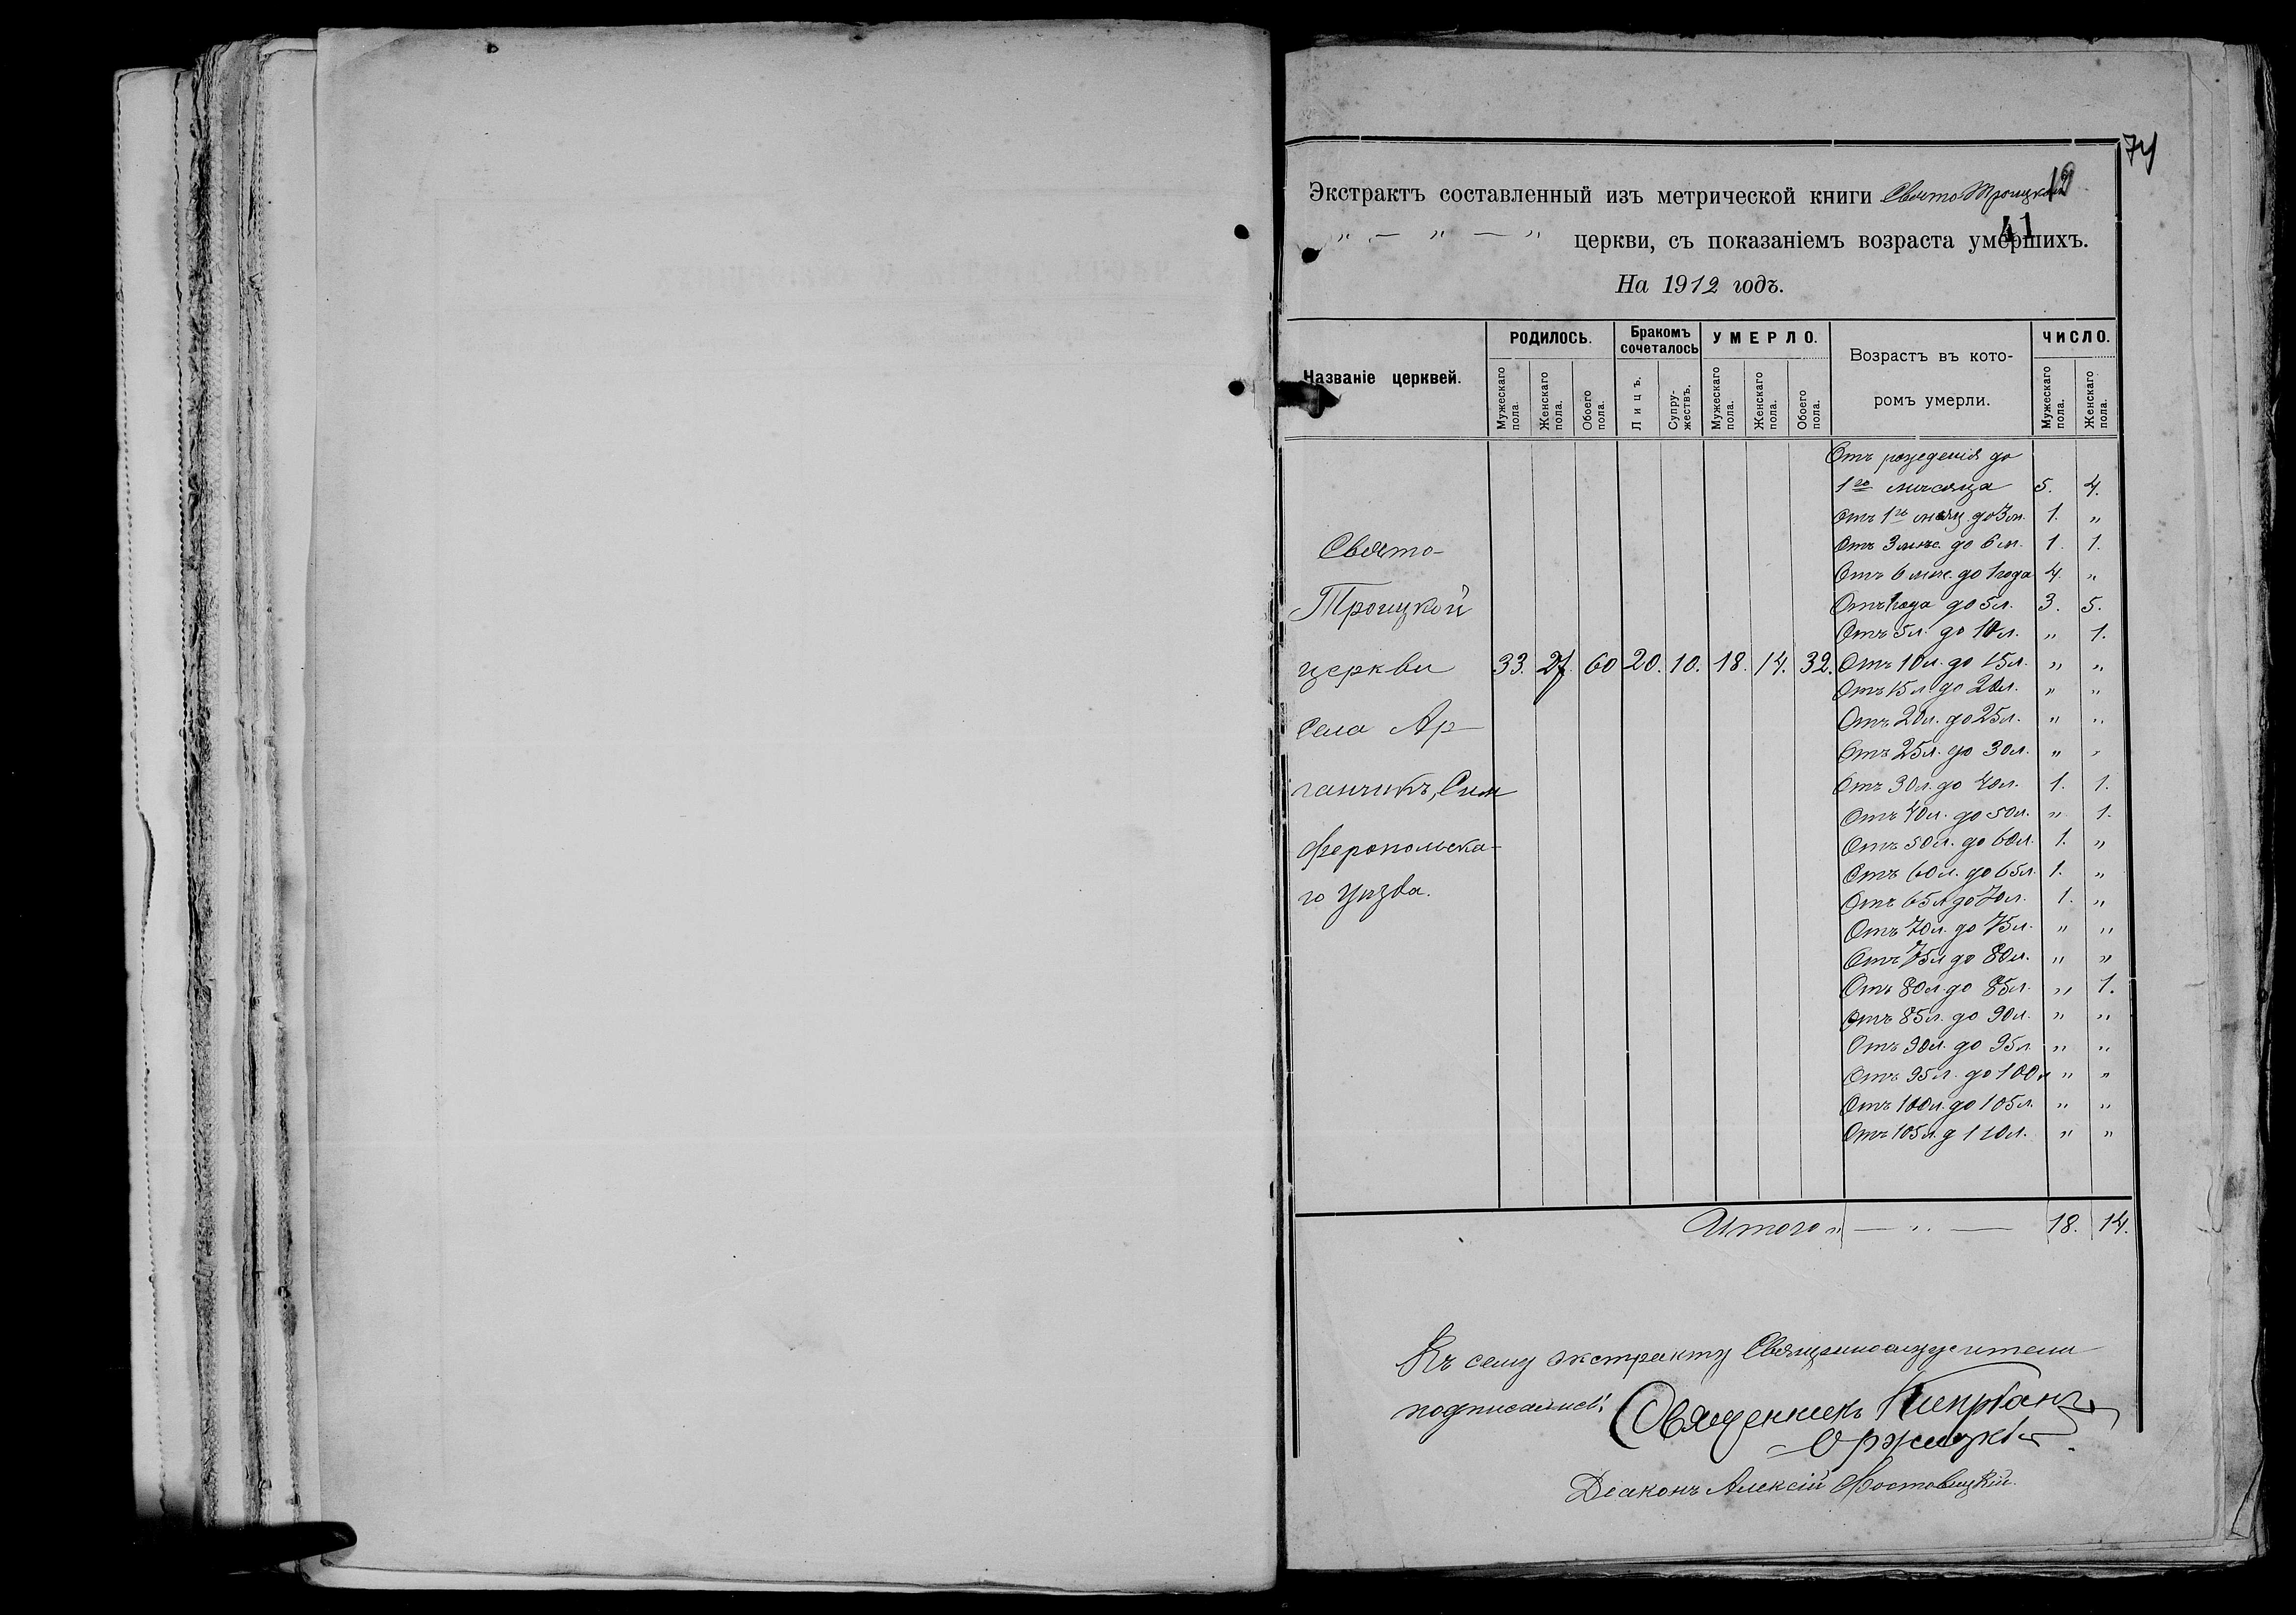 74
Экстрактъ составленный изъ метрической книги Свято Троицкой
12
41
„ — „ — „ церкви, съ показаніемъ возраста умершихъ.
На 1912 годъ.
Названіе церквей.
РОДИЛОСЬ.
Мужескаго пола.
Женскаго пола.
Обоего пола.
Бракомъ сочеталось
Лицъ.
Супру-жествъ.
УМЕРЛО.
Мужескаго пола.
Женскаго пола.
Обоего пола.
Возрастъ въ кото-
ромъ умерли.
ЧИСЛО.
Мужескаго пола.
Женскаго пола.
Свято-
Троицкой
церкви 33. 27. 60 20. 10. 18. 14. 32.
села Ар-
ганчикъ, Сим
феропольска-
го уѣзда.
Отъ рожденія до
1го мѣсяца 5. 4.
Отъ 1го мѣсяц. до 3 м. 1. „
Отъ 3 мѣс. до 6 м. 1. 1.
Отъ 6 мѣс. до 1 года 4. „
Отъ 1 года до 5 л. 3. 5.
Отъ 5 л. до 10 л. „ 1.
Отъ 10 л. до 15 л. „ „
Отъ 15 л. до 20 л. „ „
Отъ 20 л. до 25 л. „ „
Отъ 25 л. до 30 л. „ „
Отъ 30 л. до 40 л. 1. 1.
Отъ 40 л. до 50 л. „ 1.
Отъ 50 л. до 60 л. 1. „
Отъ 60 л. до 65 л. 1. „
Отъ 65 л. до 70 л. 1. „
Отъ 70 л. до 75 л. „ „
Отъ 75 л. до 80 л. „ „
Отъ 80 л. до 85 л. „ 1.
Отъ 85 л. до 90 л. „ „
Отъ 90 л. до 95 л. „ „
Отъ 95 л. до 100 л „ „
Отъ 100 л. до 105 л. „ „
Отъ 105 л. д 110 л. „ „
Итого „ — „ — 18. 14.
Къ сему экстракту Священнослужители
подписались:
Священникъ Кипріанъ
Оржицкій
Діаконъ Алексій